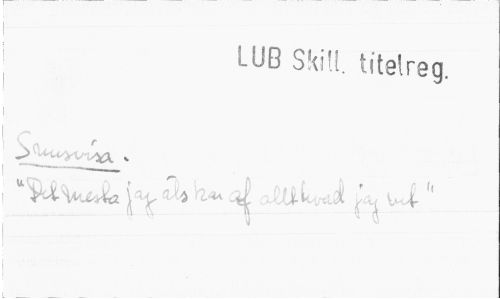 LUB Skill. titelreg.
Snusvisa.
"Det mesta jag älskar af allt hvad jag vet"